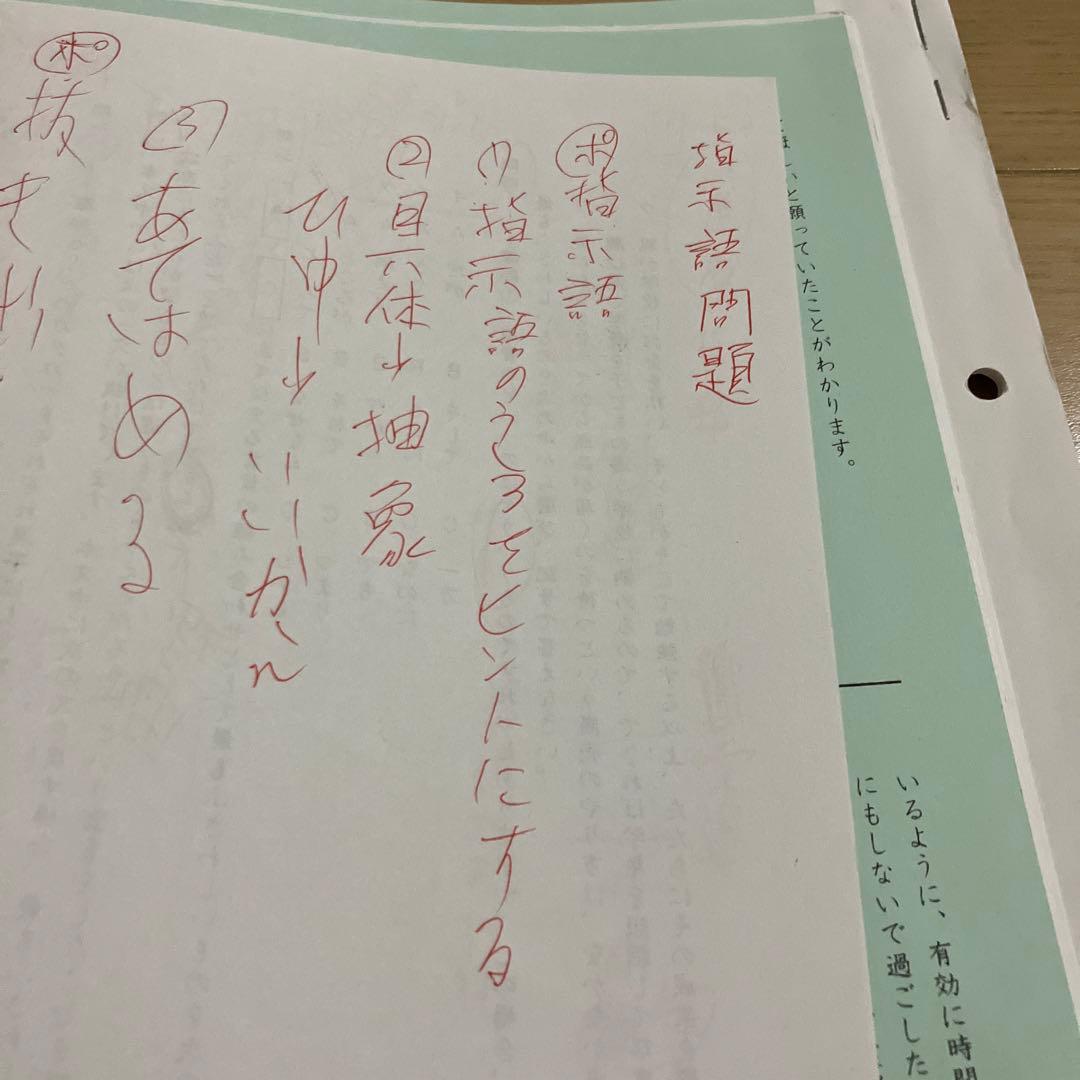 ほしいと願っていたことがわかります。
いるように、有効に時間
にもしないで過ごした
指示語問題
ポ指示語
(1)指示語のうしろをヒントにする
②具体→抽象
ひゆ→いいかえ
③あてはめる
ポ抜き出